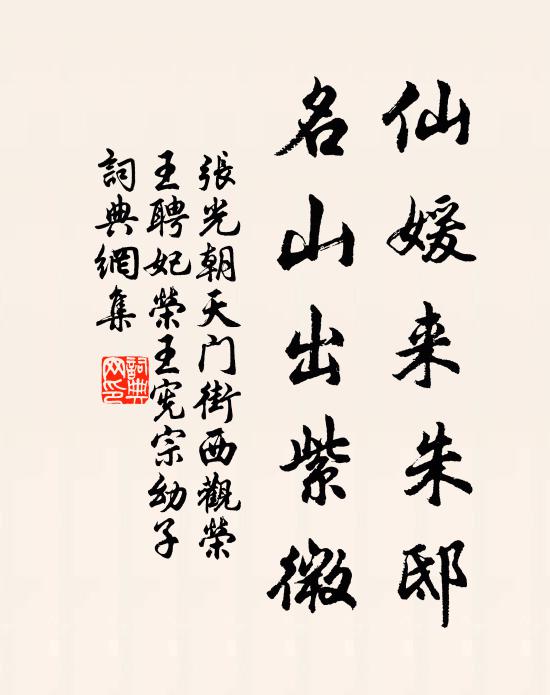 仙媛来朱邸
名山出紫微
張光朝天门街西觀榮
王聘妃榮王宪宗幼子
詞典網集
詞典網印